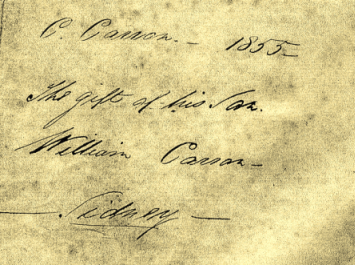 C. Carron. — 1855 —
The gift of his Son.
William Carron —
— Sidney —